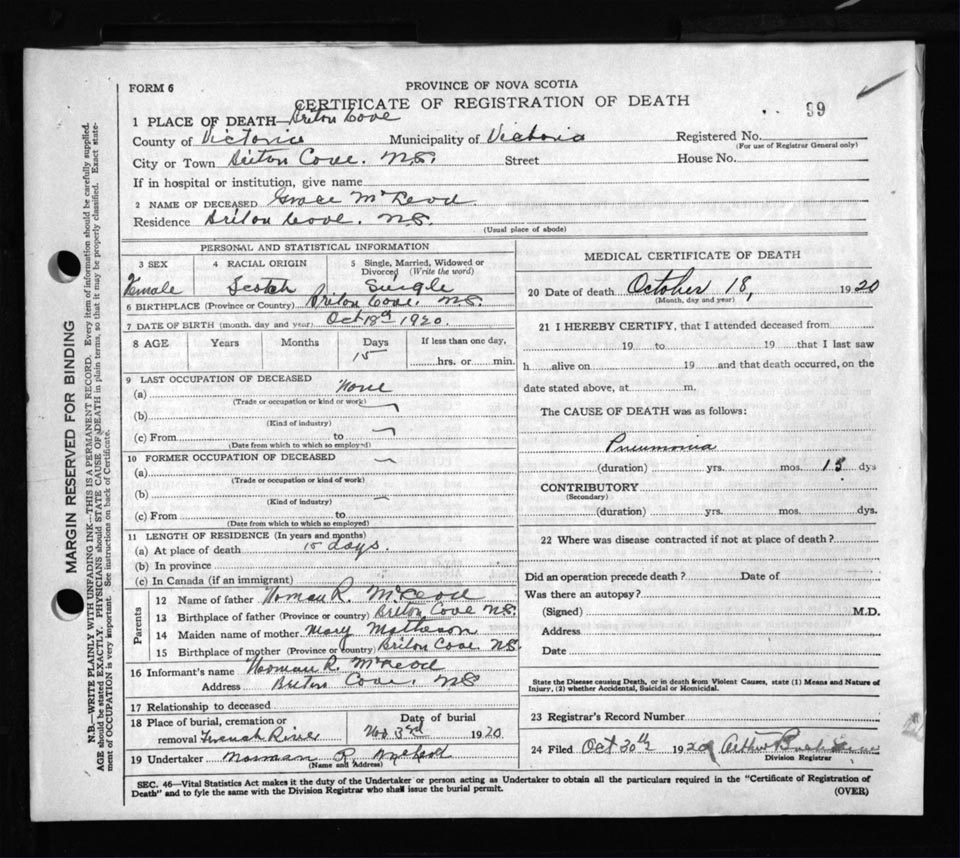 FORM 6
PROVINCE OF NOVA SCOTIA
CERTIFICATE OF REGISTRATION OF DEATH
99
1 PLACE OF DEATH—Briton Cove
County of Victoria Municipality of Victoria Registered No.
(For use of Registrar General only)
City or Town Briton Cove. N.S. Street House No.
If in hospital or institution, give name
2 NAME OF DECEASED Grace McLeod
Residence Briton Cove. N.S.
(Usual place of abode)
MARGIN RESERVED FOR BINDING
N.B.—WRITE PLAINLY WITH UNFADING INK—THIS IS A PERMANENT RECORD. Every item of information should be carefully supplied.
AGE should be stated EXACTLY. PHYSICIANS should STATE CAUSE OF DEATH in plain terms, so that it may be properly classified. Exact state-
ment of OCCUPATION is very important. See instructions on back of Certificate.
PERSONAL AND STATISTICAL INFORMATION
3 SEX 4 RACIAL ORIGIN 5 Single, Married, Widowed or
Divorced (Write the word)
Female Scotch Single
6 BIRTHPLACE (Province or Country) Briton Cove. N.S.
7 DATE OF BIRTH (month, day and year) Oct 18th 1920.
8 AGE Years Months Days If less than one day,
15 hrs. or min.
9 LAST OCCUPATION OF DECEASED
(a) None
(Trade or occupation or kind or work)
(b)
(Kind of industry)
(c) From to
(Date from which to which so employed)
10 FORMER OCCUPATION OF DECEASED
(a)
(Trade or occupation or kind of work)
(b)
(Kind of industry)
(c) From to
(Date from which to which so employed)
11 LENGTH OF RESIDENCE (In years and months)
(a) At place of death 15 days.
(b) In province
(c) In Canada (if an immigrant)
Parents
12 Name of father Norman R. McLeod
13 Birthplace of father (Province or country) Briton Cove N.S.
14 Maiden name of mother Mary Matheson
15 Birthplace of mother (Province or country) Briton Cove. N.S.
16 Informant's name Norman R. McLeod
Address Briton Cove. N.S
17 Relationship to deceased
18 Place of burial, cremation or Date of burial
removal French River Nov. 3rd 1920.
19 Undertaker Norman R. McLeod
(Name and Address)
MEDICAL CERTIFICATE OF DEATH
20 Date of death October 18, 1920
(Month, day and year)
21 I HEREBY CERTIFY, that I attended deceased from
19 to 19 that I last saw
h alive on 19 and that death occurred, on the
date stated above, at m.
The CAUSE OF DEATH was as follows:
Pneumonia
(duration) yrs. mos. 15 dys
CONTRIBUTORY
(Secondary)
(duration) yrs. mos. dys.
22 Where was disease contracted if not at place of death?
Did an operation precede death? Date of
Was there an autopsy?
(Signed) M.D.
Address
Date
State the Disease causing Death, or in death from Violent Causes, state (1) Means and Nature of
Injury, (2) whether Accidental, Suicidal or Homicidal.
23 Registrar's Record Number
24 Filed Oct 30th 1920 Arthur
Division Registrar
SEC. 46—Vital Statistics Act makes it the duty of the Undertaker or person acting as Undertaker to obtain all the particulars required in the "Certificate of Registration of
Death" and to fyle the same with the Division Registrar who shall issue the burial permit.
(OVER)